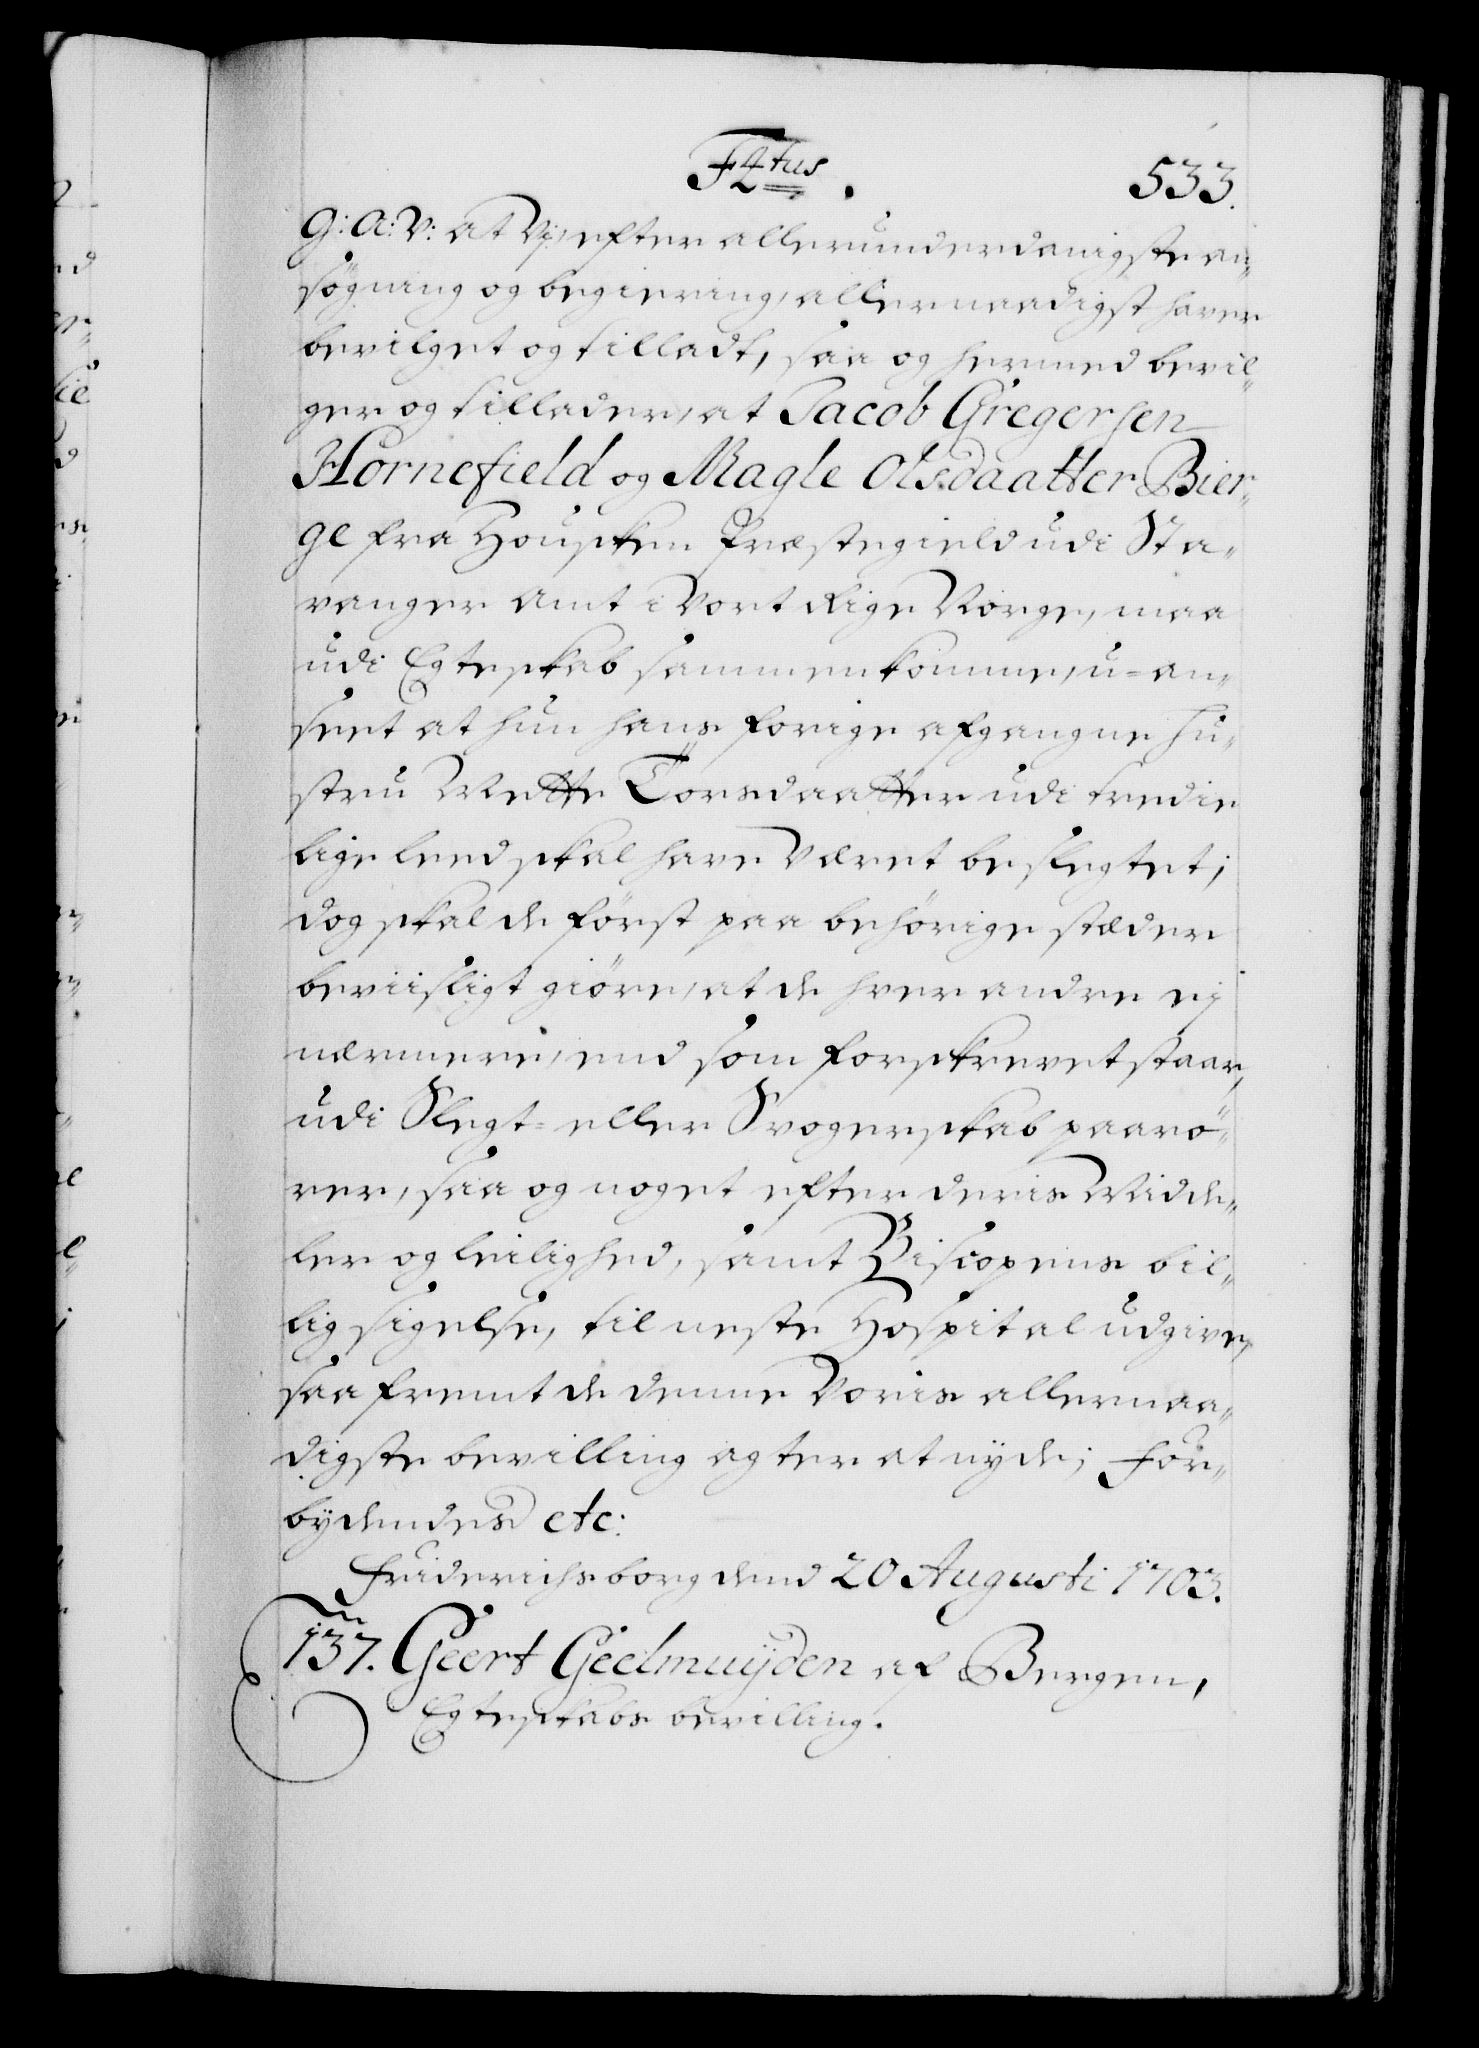 F4tus.
533.
G: A: V: at Vj, efter allerunderdanigste an„
søgning og begiering, allernaadigst haver
bevilget og tilladt, saa og hermed bevil„
ger og tillader, at Jacob Gregersen
Hornefield og Magle Olsdaatter Bier„
ge fra Housken Præstegield udi Sta„
vanger Amt i Vort Rige Norge, maa
udi Egteskab sammenkomme, u=an„
seet at hun hans forige afgangne Hu„
stru Mette Torsdaatter udi tredie
lige leed skal have været beslegtet;
dog skal de først paa behørige stæder
beviisligt giøre, at de hver andre ej
nærmere, end som forskrevet staar,
udi Slegt= eller Svogerskab paarø„
rer, saa og noget efter deris Midde„
ler og leilighed, samt Biscopens bil„
lig sigelse, til neste Hospital udgive,
saa fremt de denne Voris allernaa„
digste bevilling agter at nyde; For„
bydendes etc:
Friderichsborg dend 20 Augusti 1703.
137. Geert Geelmuÿden af Bergen,
Egteskabs bevilling.